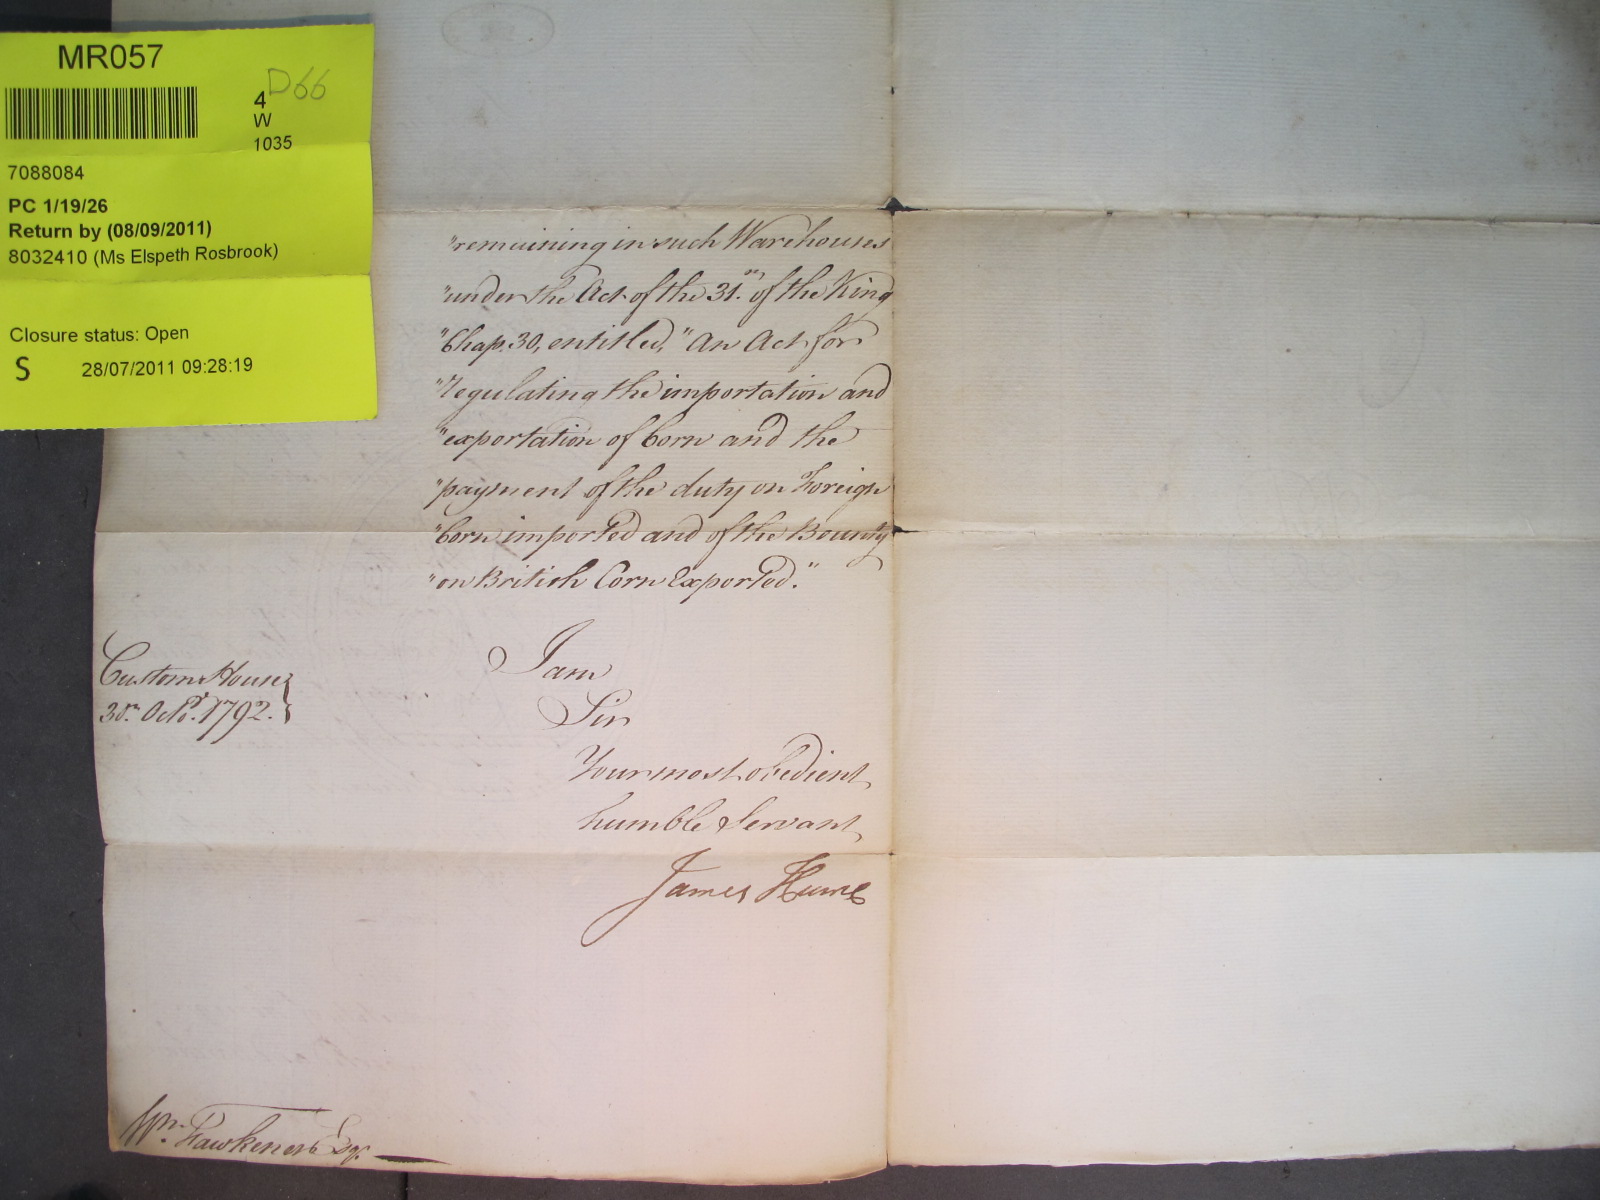 MR057
D66
4
W
1035
7088084
PC 1/19/26
Return by (08/09/2011)
8032410 (Ms Elspeth Rosbrook)
Closure status: Open
S 28/07/2011 09:28:19
"remaining in such Warehouses
"under the Act of the 31.st of the King
"Chap. 30, entitled, "An Act for
"regulating the importation and
"exportation of Corn and the
"payment of the duty on Foreign
"Corn imported and of the Bounty
"on British Corn Exported."
Custom House
Octor. 1792.
I am
Sir
Your most obedient
humble Servant
James Hume
Wm. Fawkener Esqr.